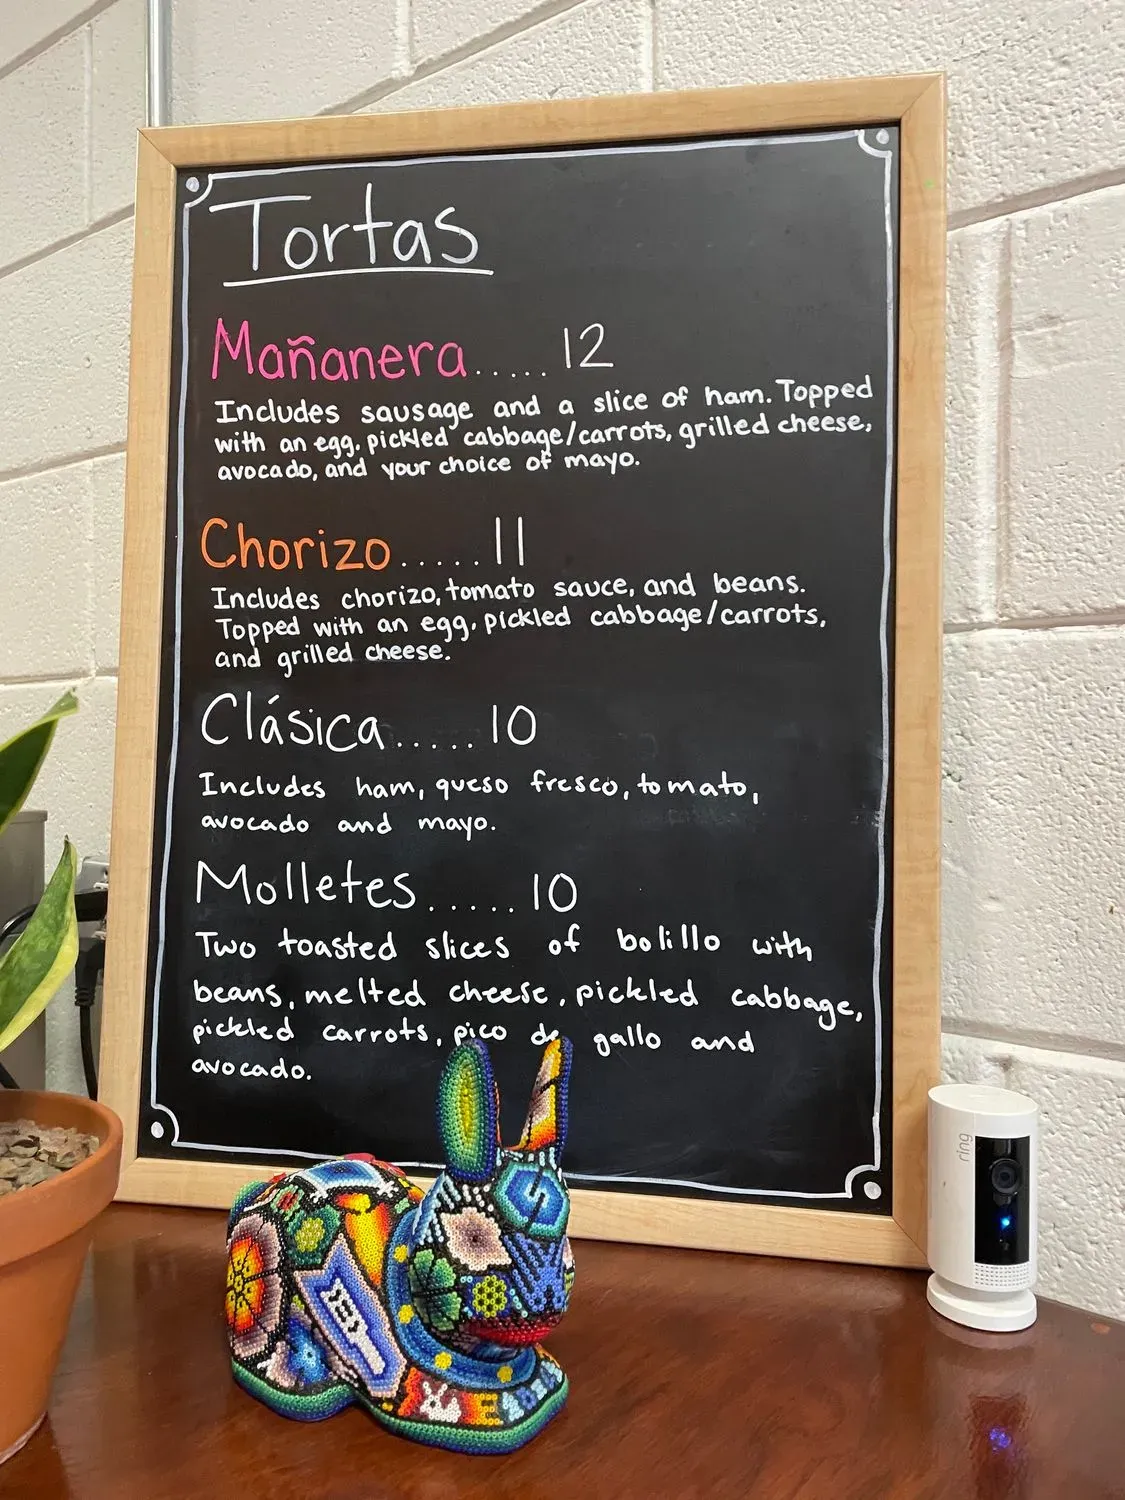 Tortas
Mañanera.....12
Includes sausage and a slice of ham. Topped
with an egg, pickled cabbage/carrots, grilled cheese,
avocado, and your choice of mayo.
Chorizo.....11
Includes chorizo, tomato sauce, and beans.
Topped with an egg, pickled cabbage/carrots,
and grilled cheese.
Clásica.....10
Includes ham, queso fresco, tomato,
avocado and mayo.
Molletes.....10
Two toasted slices of bolillo with
beans, melted cheese, pickled cabbage,
pickled carrots, pico de gallo and
avocado.
ring